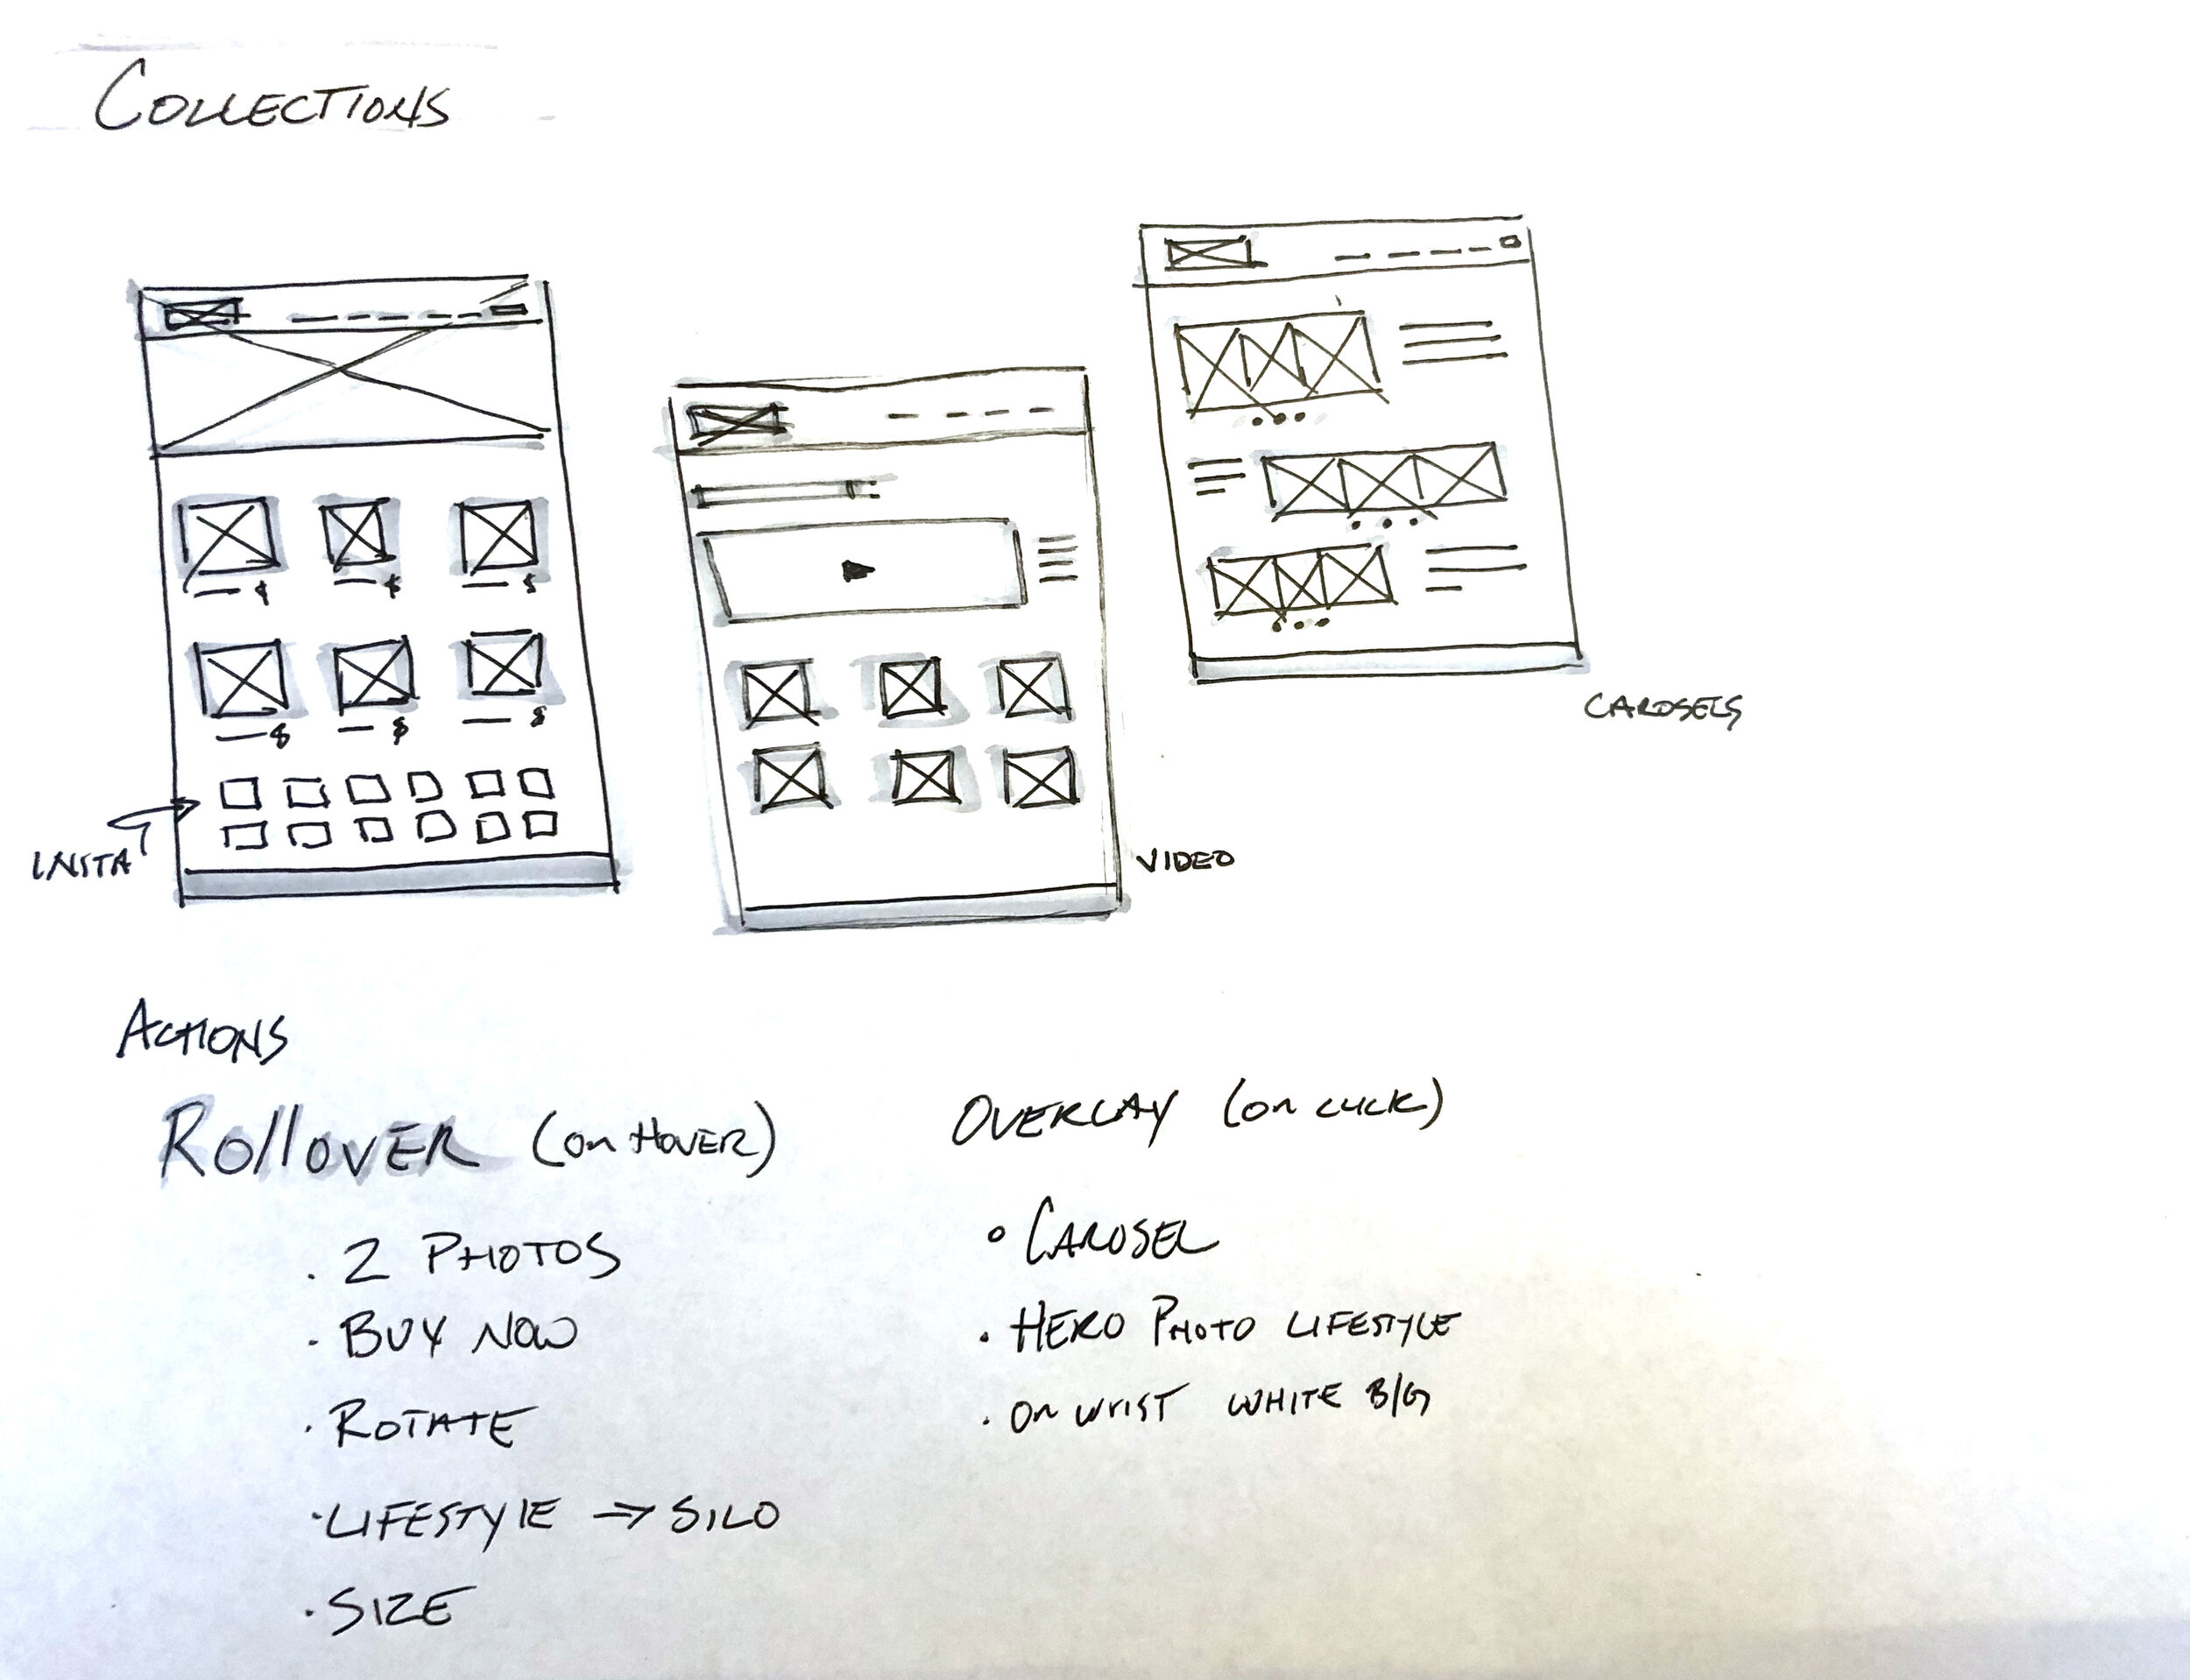 COLLECTIONS
$ $ $
$ $ $
INSTA
VIDEO
CAROSELS
ACTIONS
ROLLOVER (on HOVER)
. 2 PHOTOS
. BUY NOW
. ROTATE
. LIFESTYLE → SILO
. SIZE
OVERLAY (on CLICK)
• CAROSEL
. HERO PHOTO LIFESTYLE
. ON WRIST WHITE B/G